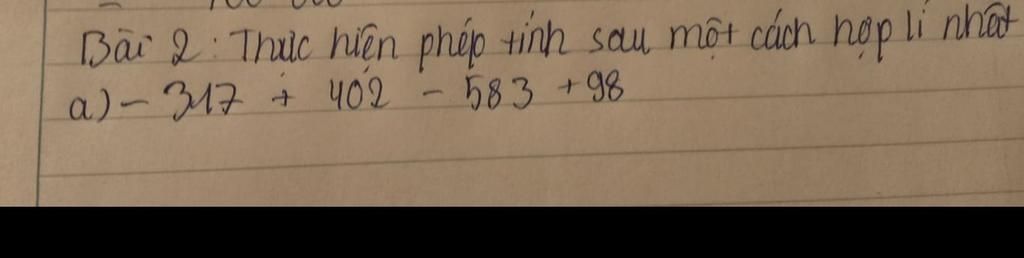 Bài 2: Thực hiện phép tính sau một cách hợp lí nhất
a) - 317 + 402 - 583 + 98